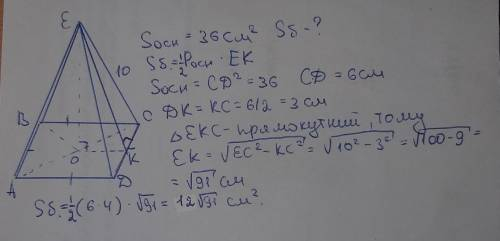 E
Sосн = 36 см² Sб - ?
Sб = ½ Pосн · EK
10
Sосн = CD² = 36 CD = 6 см
B
C
DK = KC = 6/2 = 3 см
△EKC - прямокутний, тому
K
O
EK = √EC² - KC² = √10² - 3² = √100 - 9 =
A
D
= √91 см
Sб = ½ (6·4) · √91 = 12√91 см².